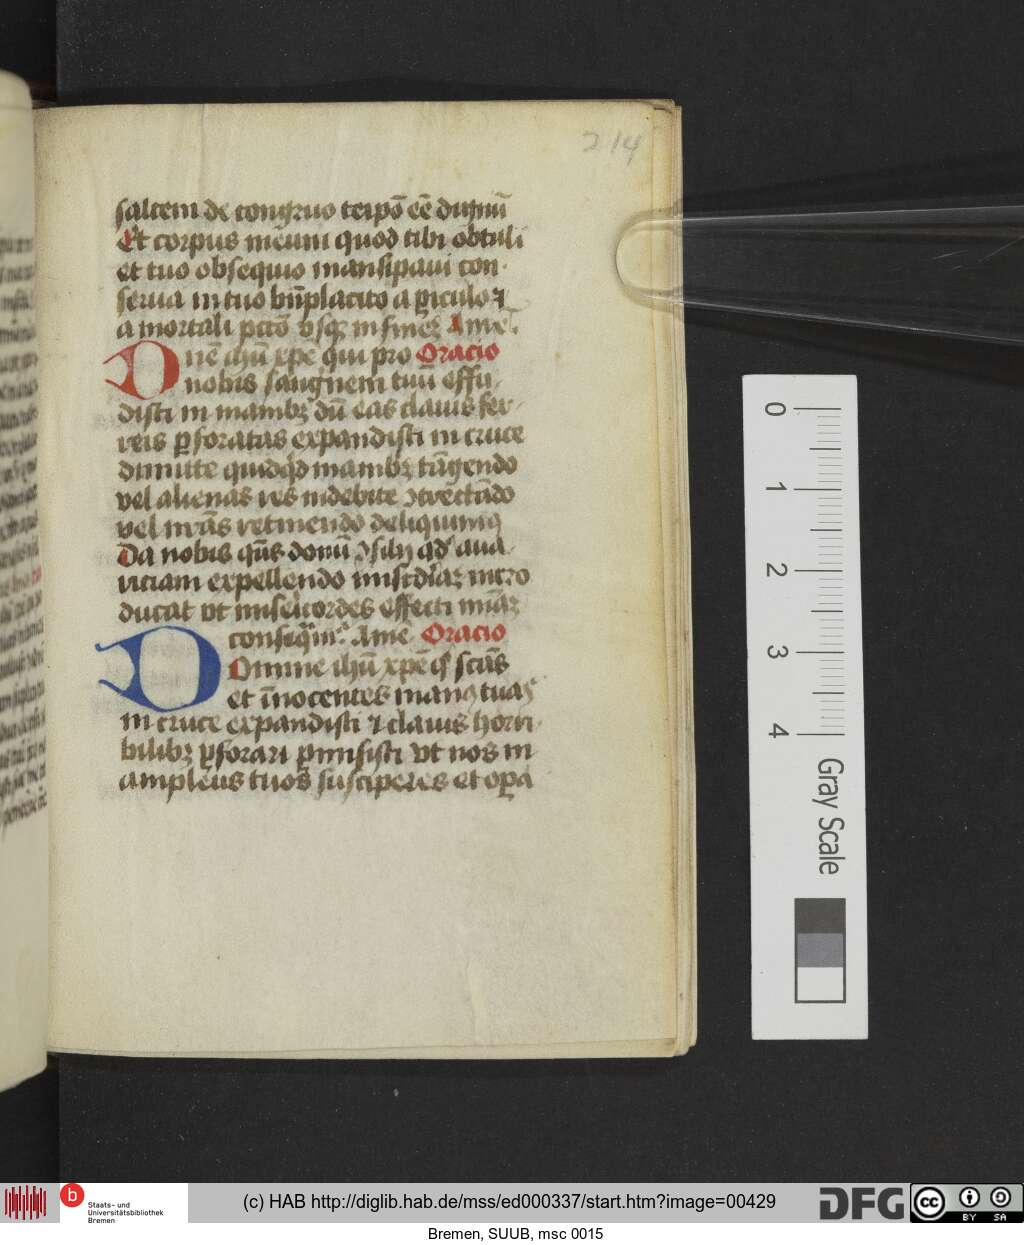 214
saltem de congruo teipō eē dignū
Et corpus meum quod tibi obtuli
et tuo obsequio mansipavi con-
serva in tuo bn̄placito a ꝑiculoꝝ
a mortali pctō vsqꝫ in fineꝫ Ame.
Dne ihū xpe qui pro Oracio
nobis sanguinem tuū effu-
disti in manibꝫ dū eas clavis fer-
reis ꝑforatas expandisti in cruce
dimitte quidqd manibꝫ tāgendo
vel alienas res indebite ꝯtrectādo
vel retinendo deliquimꝯ
Da nobis qs donū ꝯsilij qd ava-
riciam expellendo misc̄diaꝫ intro
ducat vt misericordes effecti miāꝫ
conseqmr̄ Ame Oracio
Domine ihū xpe q scās
et inocentes manꝯ tuas
in cruce expandisti ⁊ clavis horri-
bilibꝫ ꝑforari ꝑmisisti vt nos in
amplexus tuos susciperes et oꝑa
0
1
2
3
4
Gray Scale
b Staats- und
Universitätsbibliothek
Bremen
(c) HAB http://diglib.hab.de/mss/ed000337/start.htm?image=00429
DFG
cc BY SA
Bremen, SUUB, msc 0015